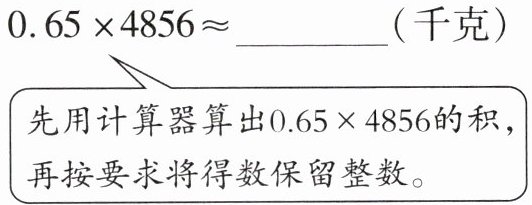 0.65×4856≈________(千克)
先用计算器算出0.65×4856的积,
再按要求将得数保留整数。